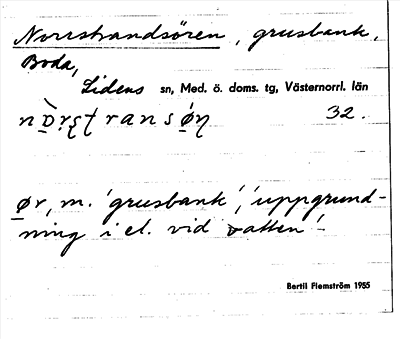 Norrstrandsören, grusbank,
Boda,
Lidens sn, Med. ö. doms. tg, Västernorrl. län
32.
ør, m. 'grusbank', 'uppgrund-
ning i el. vid vatten'.
Bertil Flemström 1955